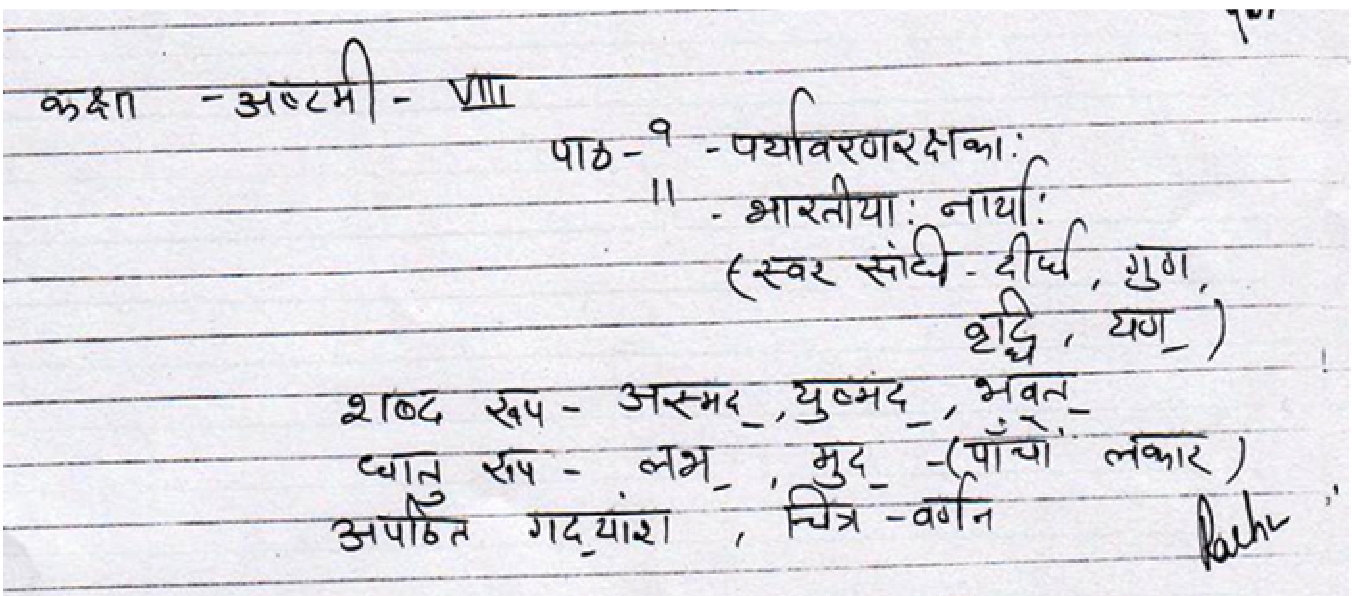 कक्षा - अष्टमी - VIII
पाठ - १ - पर्यावरणरक्षकाः
11 - भारतीयाः नार्याः
(स्वर संधि - दीर्घ, गुण,
वृद्धि, यण्)
शब्द रूप - अस्मद्, युष्मद्, भवत्
धातु रूप - लभ्, मुद् - (पाँचों लकार)
अपठित गद्यांश, चित्र - वर्णन